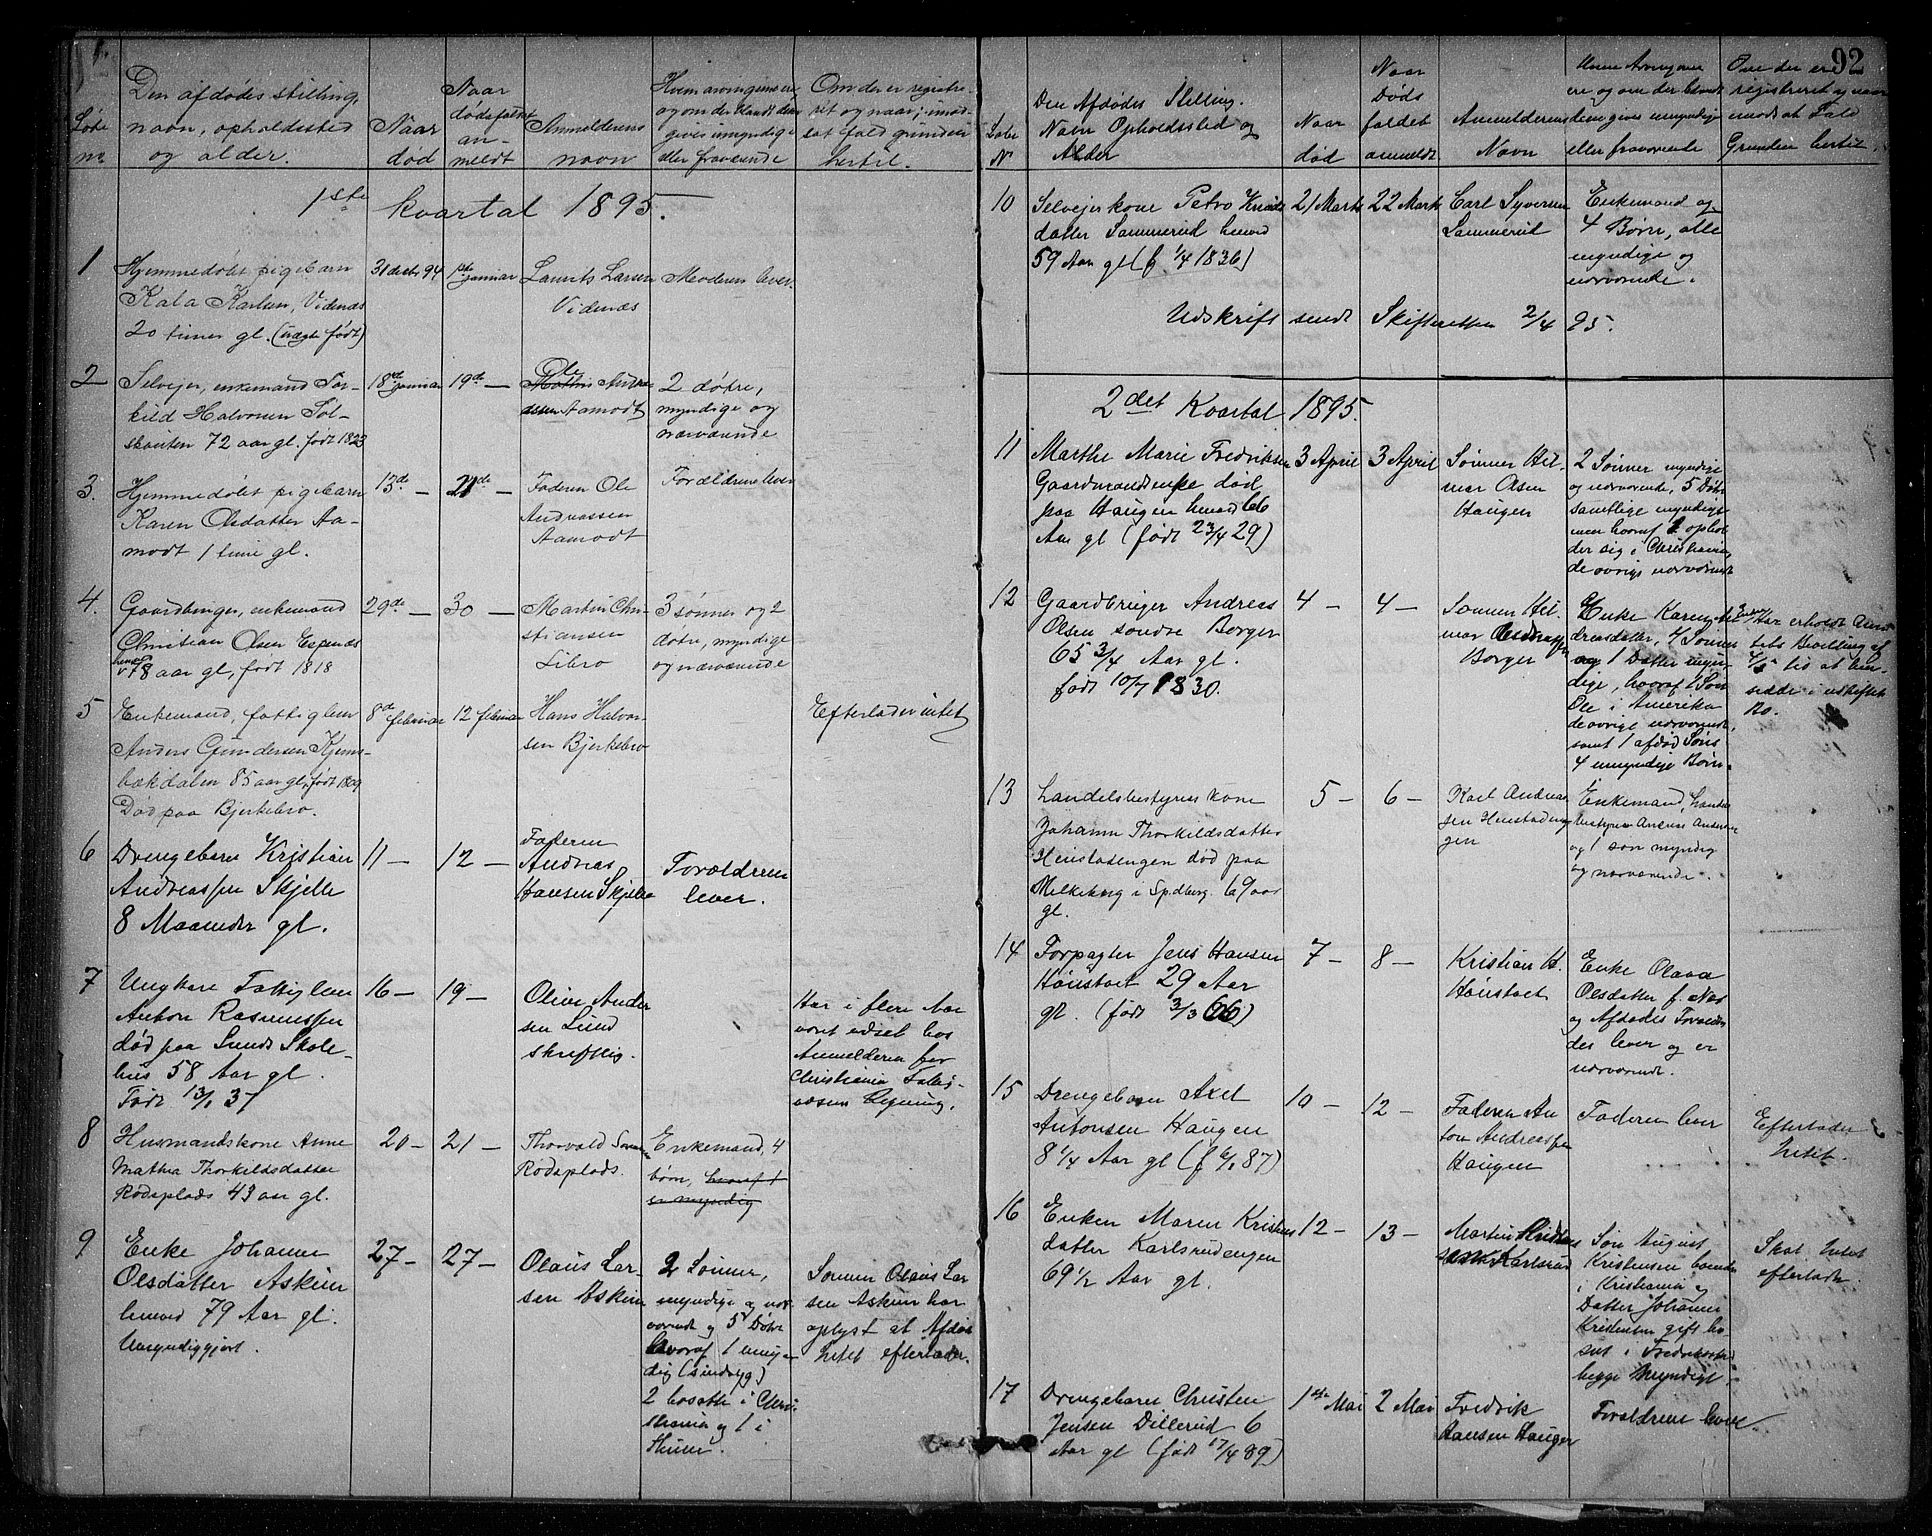 92
Løbe
no
Den afdødes stilling,
navn, opholdssted
og alder.
Naar
død
Naar
dødsfaldet
an-
meldt
Anmelderens
navn
Hvem arvingerne ere
og om der blandt dem
gives umyndige
eller fraværende
Om der er registre-
ret og naar; imod-
sat fald grunden
hertil.
1ste kvartal 1895.
1
Hjemmedøbt pigebarn
Kala Karlsen, Vidnæs
20 timer gl. (uægte født)
31 decbr 94
1ste januar
Laurits Larsen
Vidnæs
Moderen lever
2
Selveier, enkemand Tor-
kild Halvorsen Sol-
skouten 72 aar gl. født 1823
18de januar
19de —
Ole
Andre-
assen Aamodt
2 døtre,
myndige og
nærværende
3.
Hjemmedøbt pigebarn
Karen Olsdatter Aa-
modt 1 time gl.
13de —
21de —
Faderen Ole
Andreassen
Aamodt
Forældrene lever
4.
Gaardbruger, enkemand
Christian Olsen Espenæs
henved
78 aar gl, født 1818
29de —
30 —
Martin Chri-
stiansen
Libro
3 sønner og 2
døtre, myndige
og nærværende
5
Enkemand, fattiglem
Anders Gundersen Kjems-
bækdalen 85 aar gl, født 1809
Død paa Bjerkebro.
8de februar
12 februar
Hans Halvor-
sen Bjerkebro
—
Efterlader intet
6
Drengebarn Kristian
Andreassen Skjelle
8 Maaneder gl.
11 —
12 —
Faderen
Andreas
Hansen Skjelle
Forældrene
lever.
7
Ungkare Fattiglem
Anton Rasmussen
død paa Lunds Skole-
hus 58 Aar gl.
Født 13/1 37
16 —
19 —
Oliver Ander
sen Lund
skriftlig.
Har i flere Aar
været udsat hos
Anmelderen for
Christiania Fattig-
væsens Regning.
8
Husmandskone Anne
Mathea Thorkildsdatter
Rødsplads 43 aar gl.
20 —
21 —
Thorvald
Rødsplads.
Enkemand, 4
børn, hvoraf 1
er myndig
9
Enke Johanne
Olsdatter Askim
henved 79 Aar gl.
Umyndiggjort.
27 —
27 —
Olaus Lar-
sen Askim
2 Sønner,
myndige og nær-
værende og 5 Døtre
hvoraf 1 umyn-
dig (sindsyg)
2 bosatte i Chri-
stiania og 1 i
Sønnen Olaus Lar-
sen Askim har
oplyst at Afdøde
Intet efterlader.
Løbe
No
Den Afdødes Stilling.
Navn Opholdssted og
Alder
Naar
død
Naar
Døds
faldet
anmeldt
Anmelderens
Navn
Hvem Arvingerne
ere og om der blandt
dem gives umyndige
eller fraværende
Om der er
registreret og naar
imodsat Fald
Grunden hertil.
10
Selveierkone Petro Knuds
datter Sammerud henved
59 Aar gl (f. 1/4 1836)
21 Marts
22 Marts
Carl Syversen
Sammerud
Enkemand og
4 Børn, alle
myndige og
nærværende.
Udskrift sendt Skifteretten 2/4 95.
2det Kvartal 1895.
11
Marthe Marie Fredriksen
Gaardmandsenke død
paa Haugen henved 66
Aar gl (født 23/4 29)
3 April
3 April
Sønnen Hil-
mar Olsen
Haugen
2 Sønner myndige
og nærværende, 5 Døtre
samtlige myndige
men hvoraf 1 ophol-
der sig i Christiania,
de øvrige nærværende
12
Gaardbruger Andreas
Olsen søndre Borger
65 3/4 Aar gl.
født 10/7 1830.
4 —
4 —
Sønnen Hil-
mar
Borger
Enke Karen
dreasdatter, 4 Sønner
og 1 Datter myn-
dige, hvoraf 1 Søn
Ole i Amerika
de øvrige nærværende,
samt 1 afdød Søns
4 umyndige Børn
Enken Har erholdt Am-
tets Bevilling af
4/5 til at hen-
sidde i uskiftet
Bo.
13
Handelsbestyrers kone
Johanne Thorkildsdatter
Henstadengen død paa
Melkeberg i Spydberg. 69 aar
gl.
5 —
6 —
Karl Andreas-
sen Henstaden-
gen
Enkemand, Handels
bestyrer
og 1 søn myndig
og nærværende.
14
Forpagter Jens Hansen
Hønstoet 29 Aar
gl. (født 3/3 66)
7 —
8 —
Kristian H.
Hønstoet
Enke Olava
Olsdatter f. Næs
og Afdødes Foræld-
des lever og er
nærværende.
15
Drengebarn Axel
Antonsen Haugen
8 1/4 Aar gl (f 6/1 87)
10 —
12 —
Faderen An
ton Andreassen
Haugen
Faderen lever
Efterlader
Intet.
16
Enken Maren Kristens
datter Karlsrudengen
69 1/2 Aar gl.
12 —
13 —
Martin
Karlsrud
Søn August
Kristensen boende
i Kristiania og
Datter Johanne
Kristensen gift bo-
sat i Fredrikstad
begge Myndige.
Skal Intet
efterlade.
17
Drengebarn Christen
Jensen Dillerud 6
Aar gl (født 17/4 89)
1ste Mai
2 Mai
Fredrik
Hansen Hauger
Forældrene lever